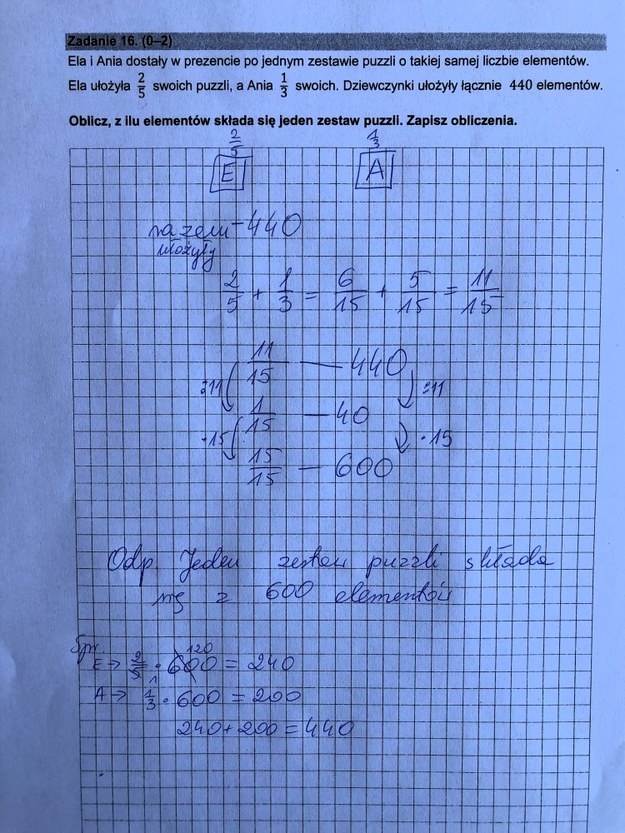 Zadanie 16. (0–2)
Ela i Ania dostały w prezencie po jednym zestawie puzzli o takiej samej liczbie elementów.
Ela ułożyła 2/5 swoich puzzli, a Ania 1/3 swoich. Dziewczynki ułożyły łącznie 440 elementów.
Oblicz, z ilu elementów składa się jeden zestaw puzzli. Zapisz obliczenia.
2/5 1/3
E A
razem – 440
ułożyły
2/5 + 1/3 = 6/15 + 5/15 = 11/15
11/15 — 440
:11 :11
1/15 — 40
·15 ·15
15/15 — 600
Odp. Jeden zestaw puzzli składa
się z 600 elementów
Spr.
E → 2/5 · 600 = 240
120
1
A → 1/3 · 600 = 200
240 + 200 = 440